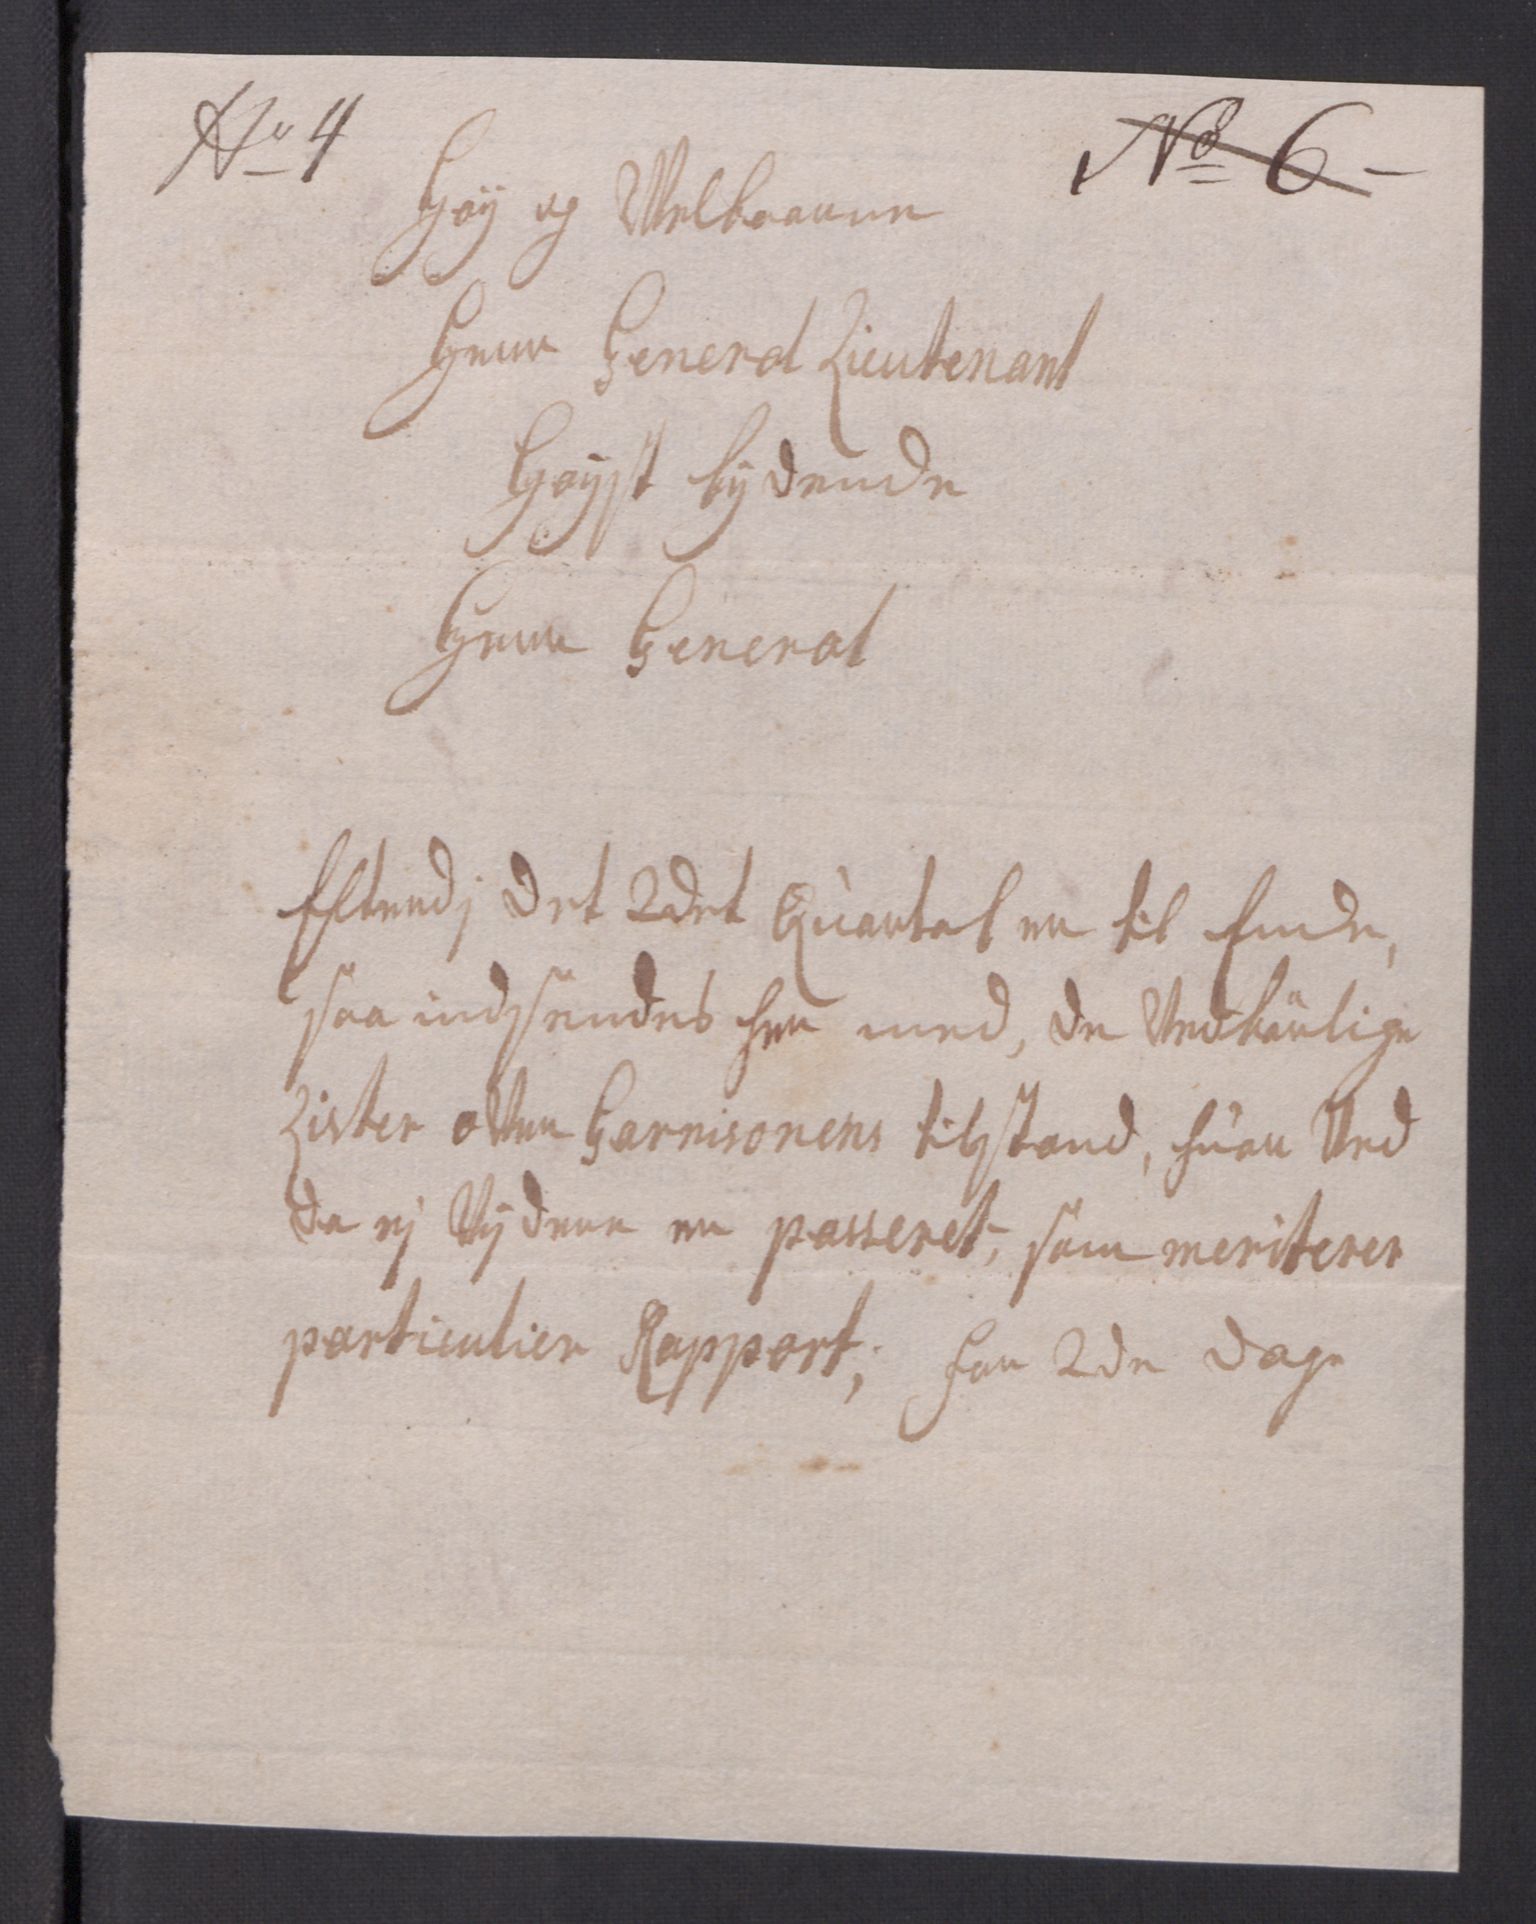 No 4
No 6
Høÿ og Welbaarne
Herr General Lieutenant
Høÿst bÿdende
Herr General
Efterdj det 2det Quartal er til Ende,
saa indsendes her med, de Vedbørlige
Lister over Garnisonens tilstand, hvor Ved
da ej Vÿdere er passeret, som meriterer
particulier Rapport; for 2de dage